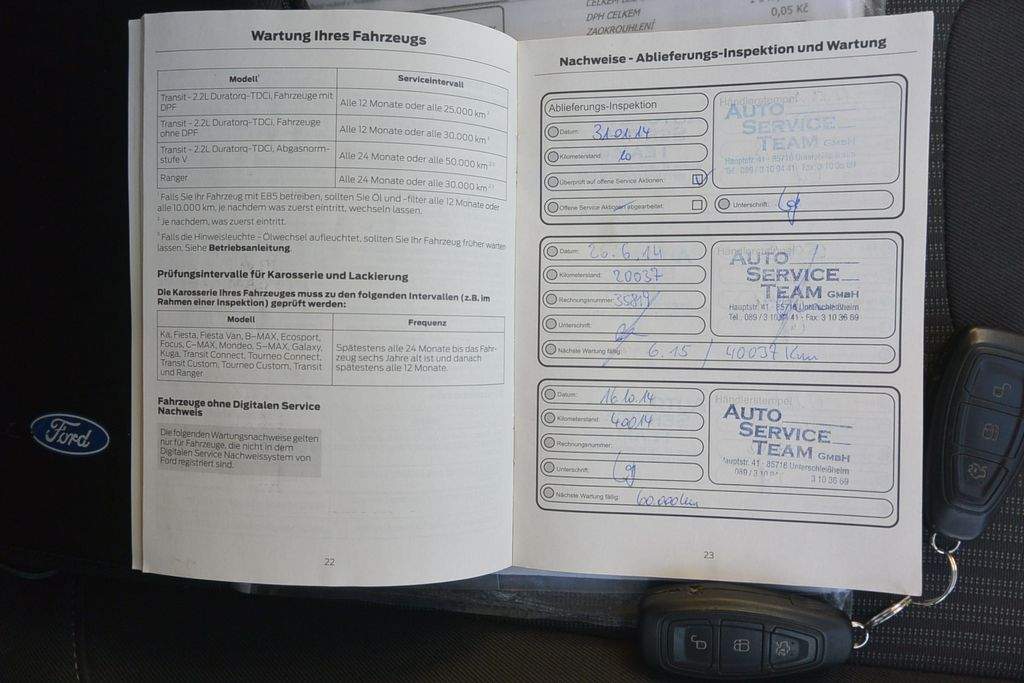 DPH CELKEM
ZAOKROUHLENÍ
0,05 Kč
Wartung Ihres Fahrzeugs
Modell Serviceintervall
Transit - 2.2L Duratorq-TDCi, Fahrzeuge mit
DPF
Alle 12 Monate oder alle 25.000 km
Transit - 2.2L Duratorq-TDCi, Fahrzeuge
ohne DPF
Alle 12 Monate oder alle 30.000 km
Transit - 2.2L Duratorq-TDCi, Abgasnorm-
stufe V
Alle 24 Monate oder alle 50.000 km
Ranger Alle 24 Monate oder alle 30.000 km
Falls Sie Ihr Fahrzeug mit E85 betreiben, sollten Sie Öl und -filter alle 12 Monate oder
alle 10.000 km, je nachdem was zuerst eintritt, wechseln lassen.
Je nachdem, was zuerst eintritt.
Falls die Hinweisleuchte - Ölwechsel aufleuchtet, sollten Sie Ihr Fahrzeug früher warten
lassen. Siehe Betriebsanleitung.
Prüfungsintervalle für Karosserie und Lackierung
Die Karosserie Ihres Fahrzeuges muss zu den folgenden Intervallen (z.B. im
Rahmen einer Inspektion) geprüft werden:
Modell Frequenz
Ka, Fiesta, Fiesta Van, B-MAX, Ecosport,
Focus, C-MAX, Mondeo, S-MAX, Galaxy,
Kuga, Transit Connect, Tourneo Connect,
Transit Custom, Tourneo Custom, Transit
und Ranger
Spätestens alle 24 Monate bis das Fahr-
zeug sechs Jahre alt ist und danach
spätestens alle 12 Monate.
Fahrzeuge ohne Digitalen Service
Nachweis
Die folgenden Wartungsnachweise gelten
nur für Fahrzeuge, die nicht in dem
Digitalen Service Nachweissystem von
Ford registriert sind.
22
Ford
Nachweise - Ablieferungs-Inspektion und Wartung
Ablieferungs-Inspektion
Datum: 31.01.14
Kilometerstand: 10
Überprüft auf offene Service Aktionen:
Offene Service Aktionen abgearbeitet:
Händlerstempel
AUTO
SERVICE
TEAM GMBH
Hauptstr. 41 - 85716 Unterschleißheim
Unterschrift:
Datum: 20.6.14
Kilometerstand: 20037
Rechnungsnummer: 35814
Unterschrift:
Nächste Wartung fällig: 6.15 / 40037 Km
Händlerstempel
AUTO
SERVICE
TEAM GMBH
Hauptstr. 41 - 85716 Unterschleißheim
Tel. 089 / 3 10 94 41 - Fax: 3 10 36 69
Datum: 16.10.14
Kilometerstand: 40014
Rechnungsnummer:
Unterschrift:
Nächste Wartung fällig: 60.000km
Händlerstempel
AUTO
SERVICE
TEAM GMBH
Hauptstr. 41 - 85716 Unterschleißheim
089 / 3 10 94 3 10 36 69
23